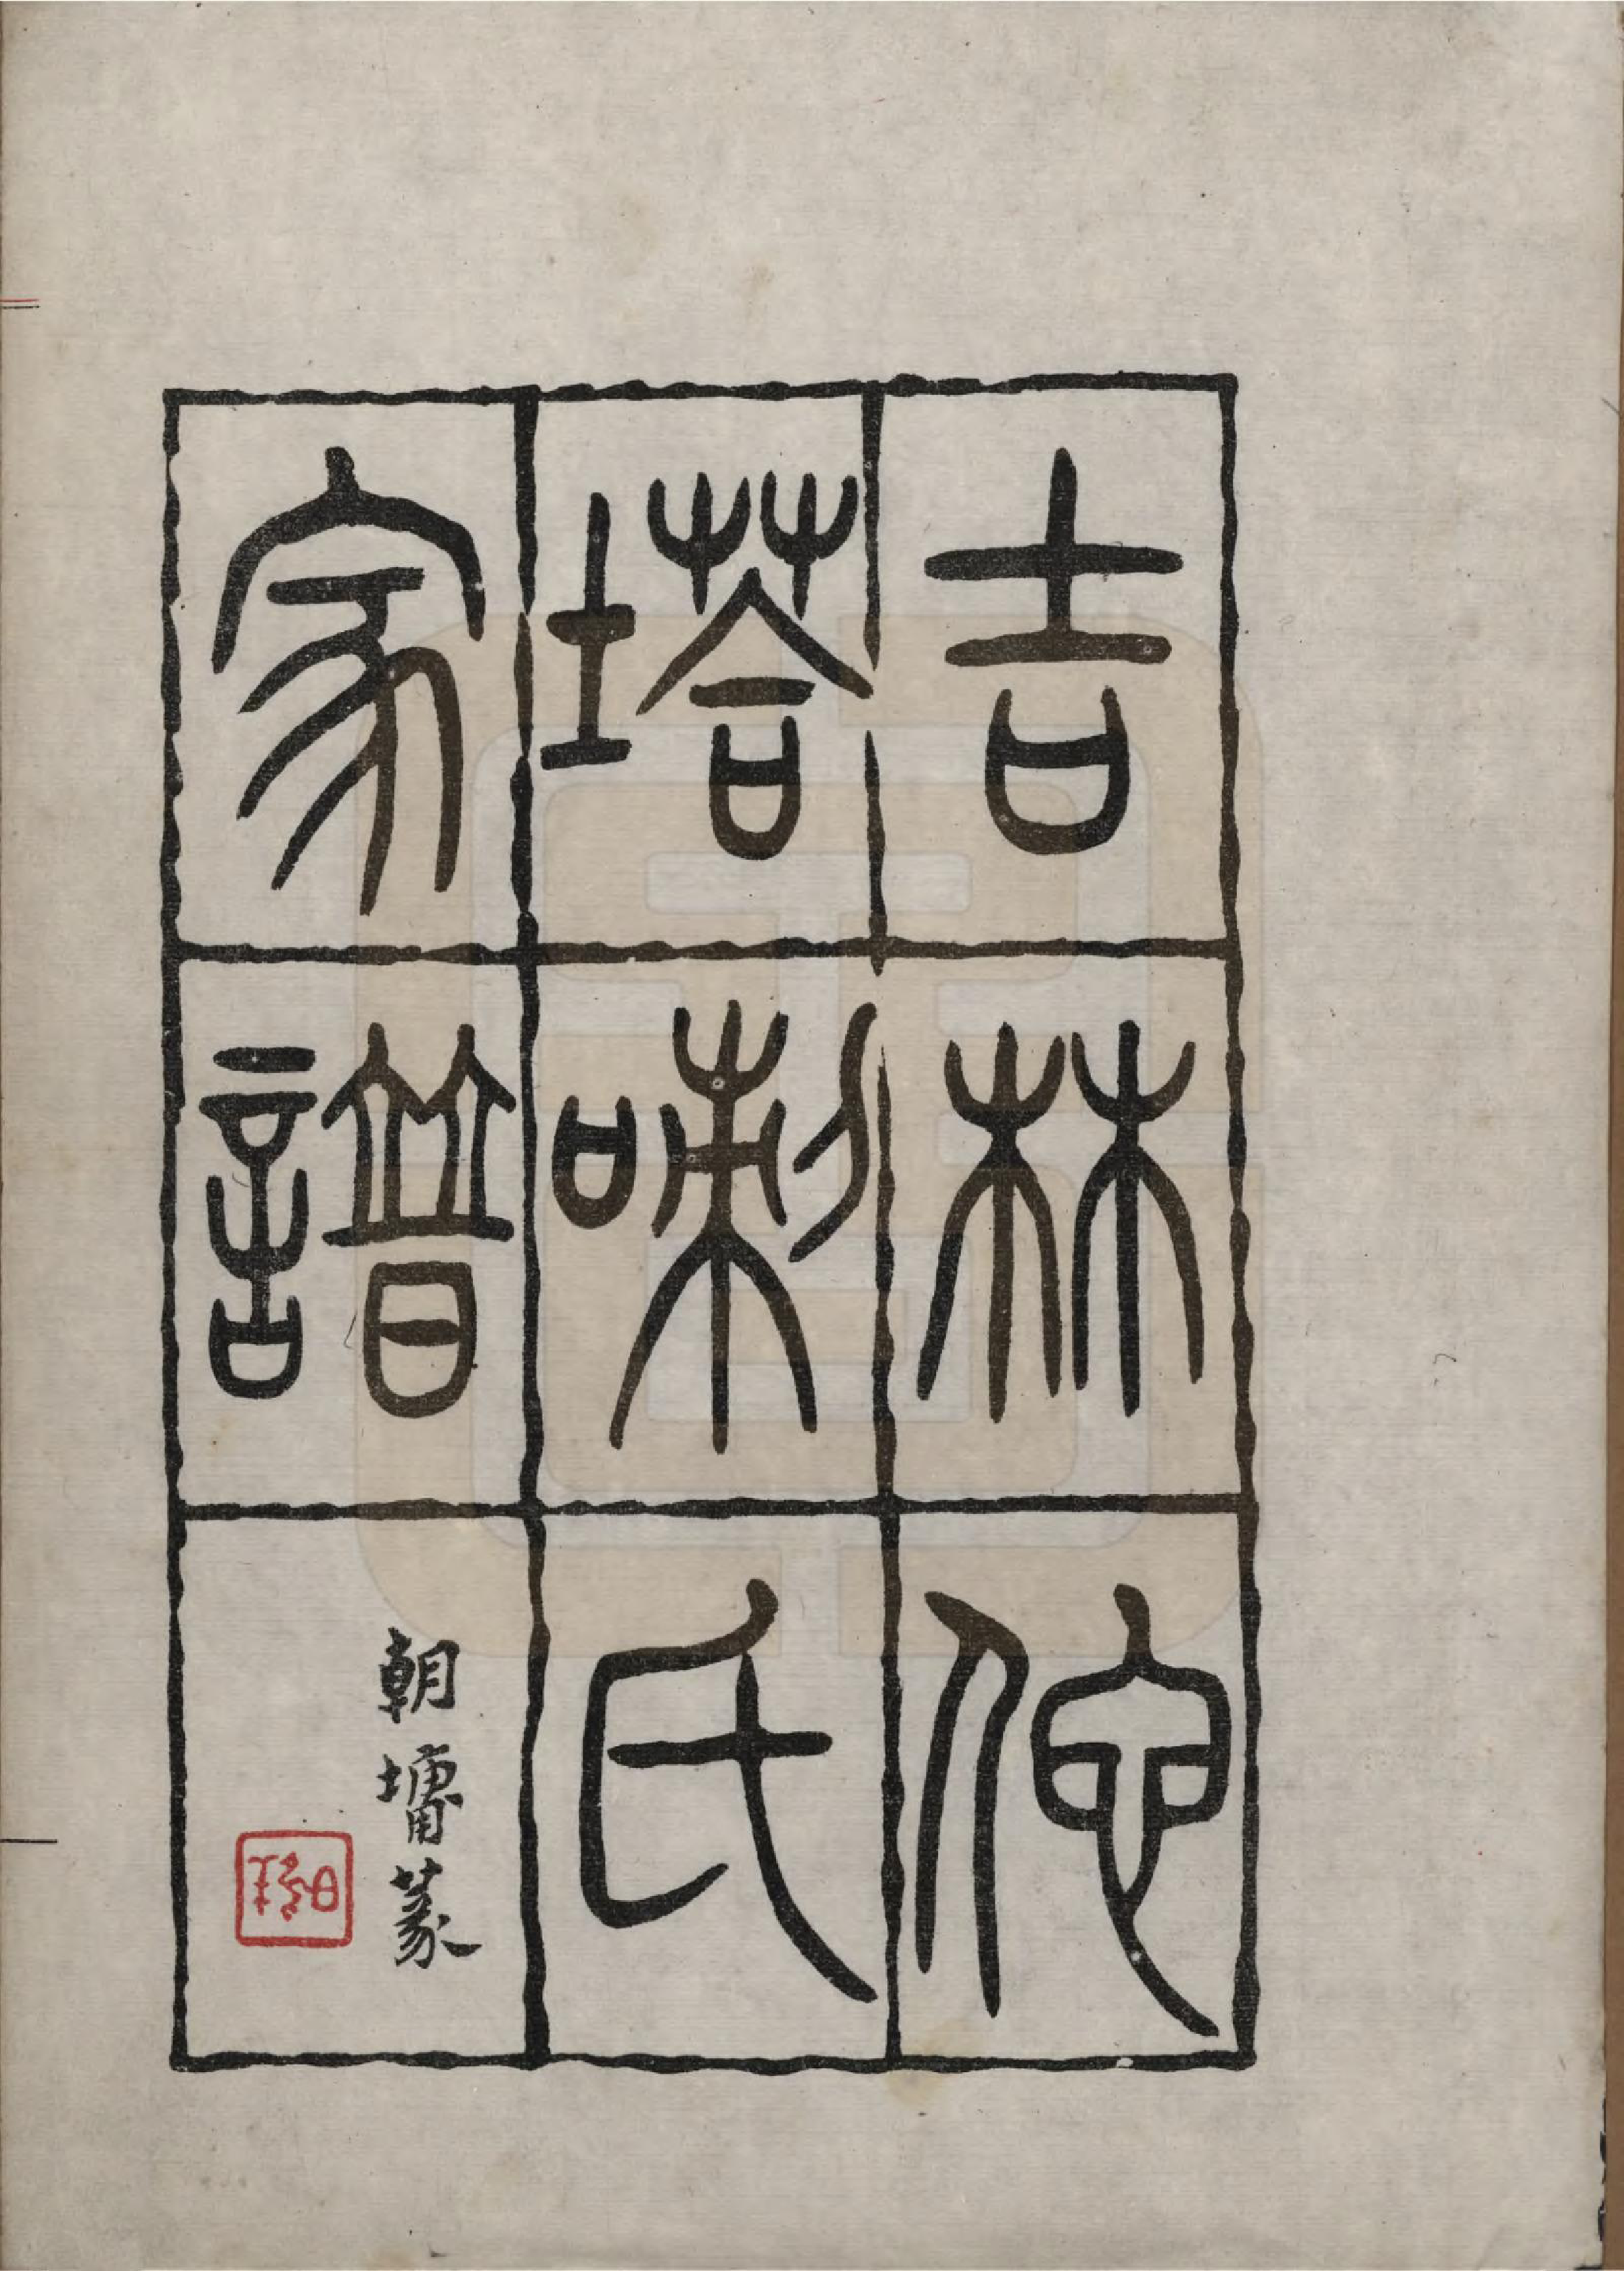 吉林佗
塔喇氏
家譜
朝墉篆